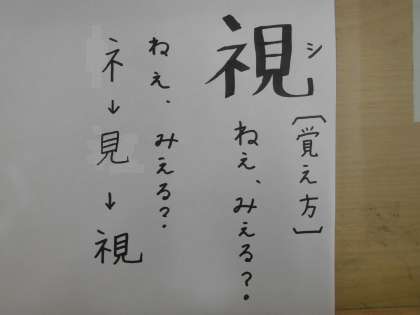 シ
視
[覚え方]
ねえ、みえる?。
ねぇ、みえる?.
ネ→見→視